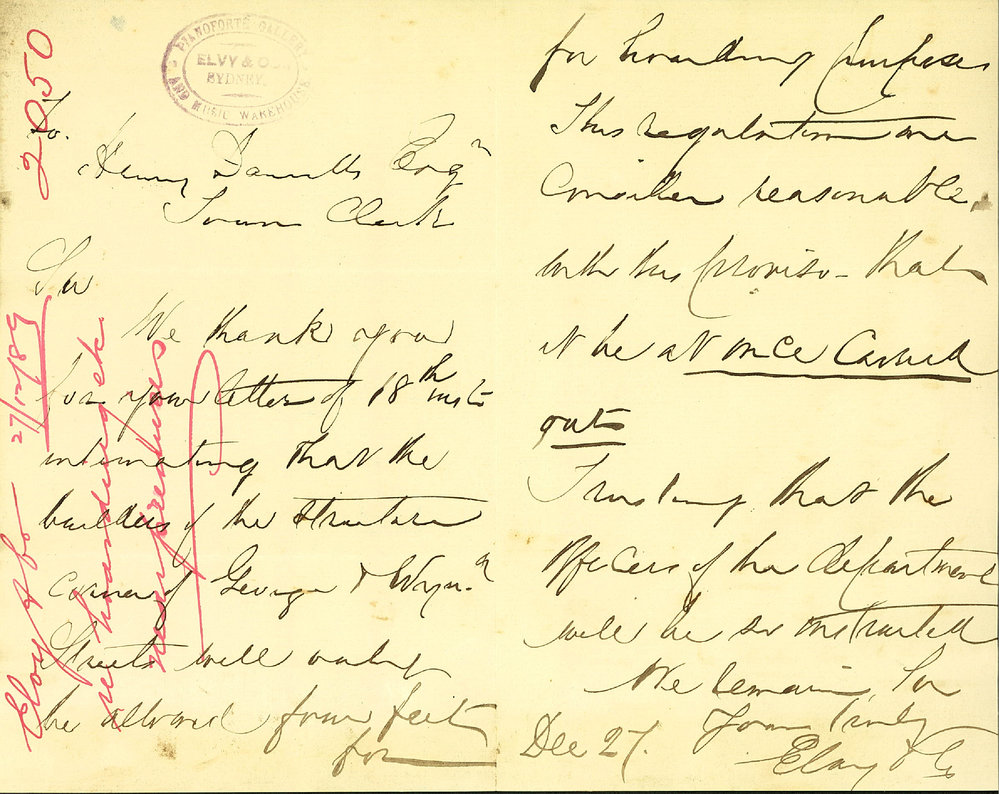 PIANOFORTE GALLERY
ELVY & CO.
SYDNEY.
AND MUSIC WAREHOUSE
To.
Henry Daniells Esqr
Town Clerk
Sir
We thank you
for your letter of 18th inst
intimating that the
builders of the structure
corner of George & Wynd
Streets will only
be allowed four feet
for
for hoarding purposes
This regulation we
Consider reasonable,
with this proviso - that
it be at once Carried
out
Trusting that the
Officers of the department
will be so instructed
We remain, Sir
Yours truly
Elvy & Co
Dec 27.
2050
Elvy & Co - 27/12/89
re hoarding etc
near premises